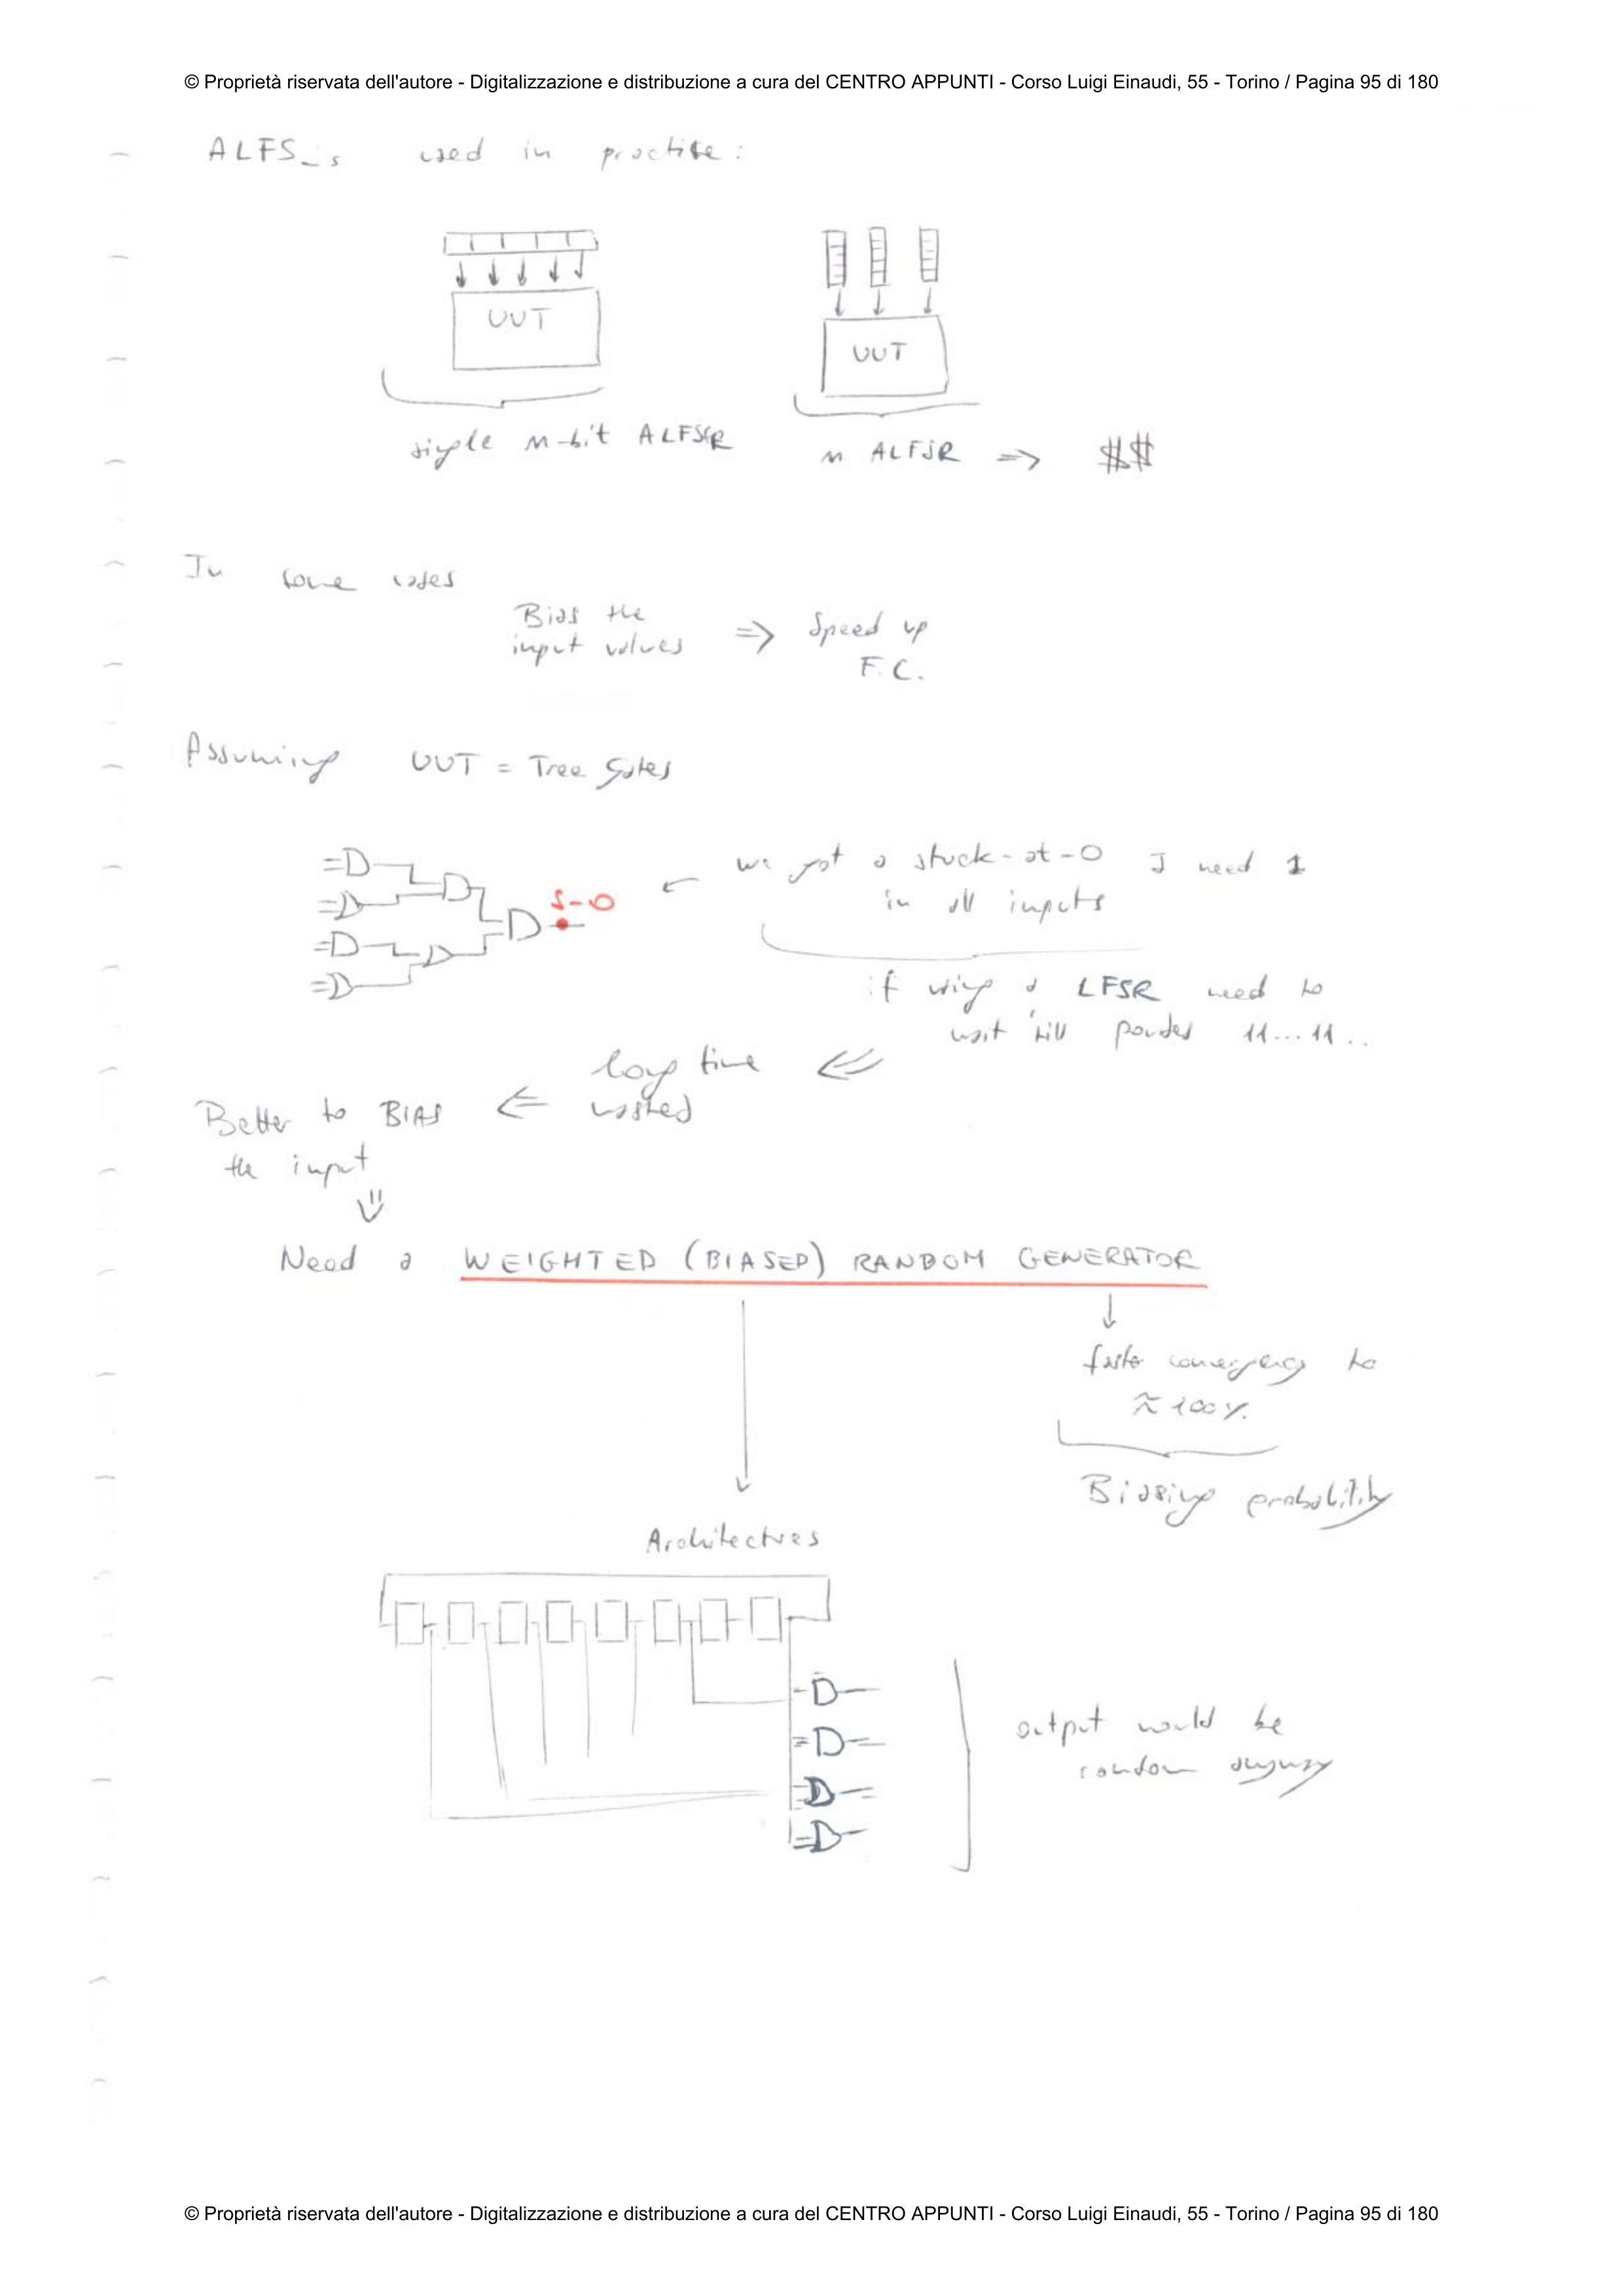 © Proprietà riservata dell'autore - Digitalizzazione e distribuzione a cura del CENTRO APPUNTI - Corso Luigi Einaudi, 55 - Torino / Pagina 95 di 180
ALFS_s used in practise:
UUT
UUT
single n-bit ALFSR
n ALFSR => $$
In some cases
Bias the
input values => Speed up
F.C.
Assuming UUT = Tree Gates
we got a stuck-at-0 I need 1
S-0
in all inputs
if using a LFSR need to
wait till 11...11..
long time
wasted
Better to BIAS
the input
Need a WEIGHTED (BIASED) RANDOM GENERATOR
faster convergency to
≈ 100%
Biasing probability
Architectures
output would be
random
© Proprietà riservata dell'autore - Digitalizzazione e distribuzione a cura del CENTRO APPUNTI - Corso Luigi Einaudi, 55 - Torino / Pagina 95 di 180